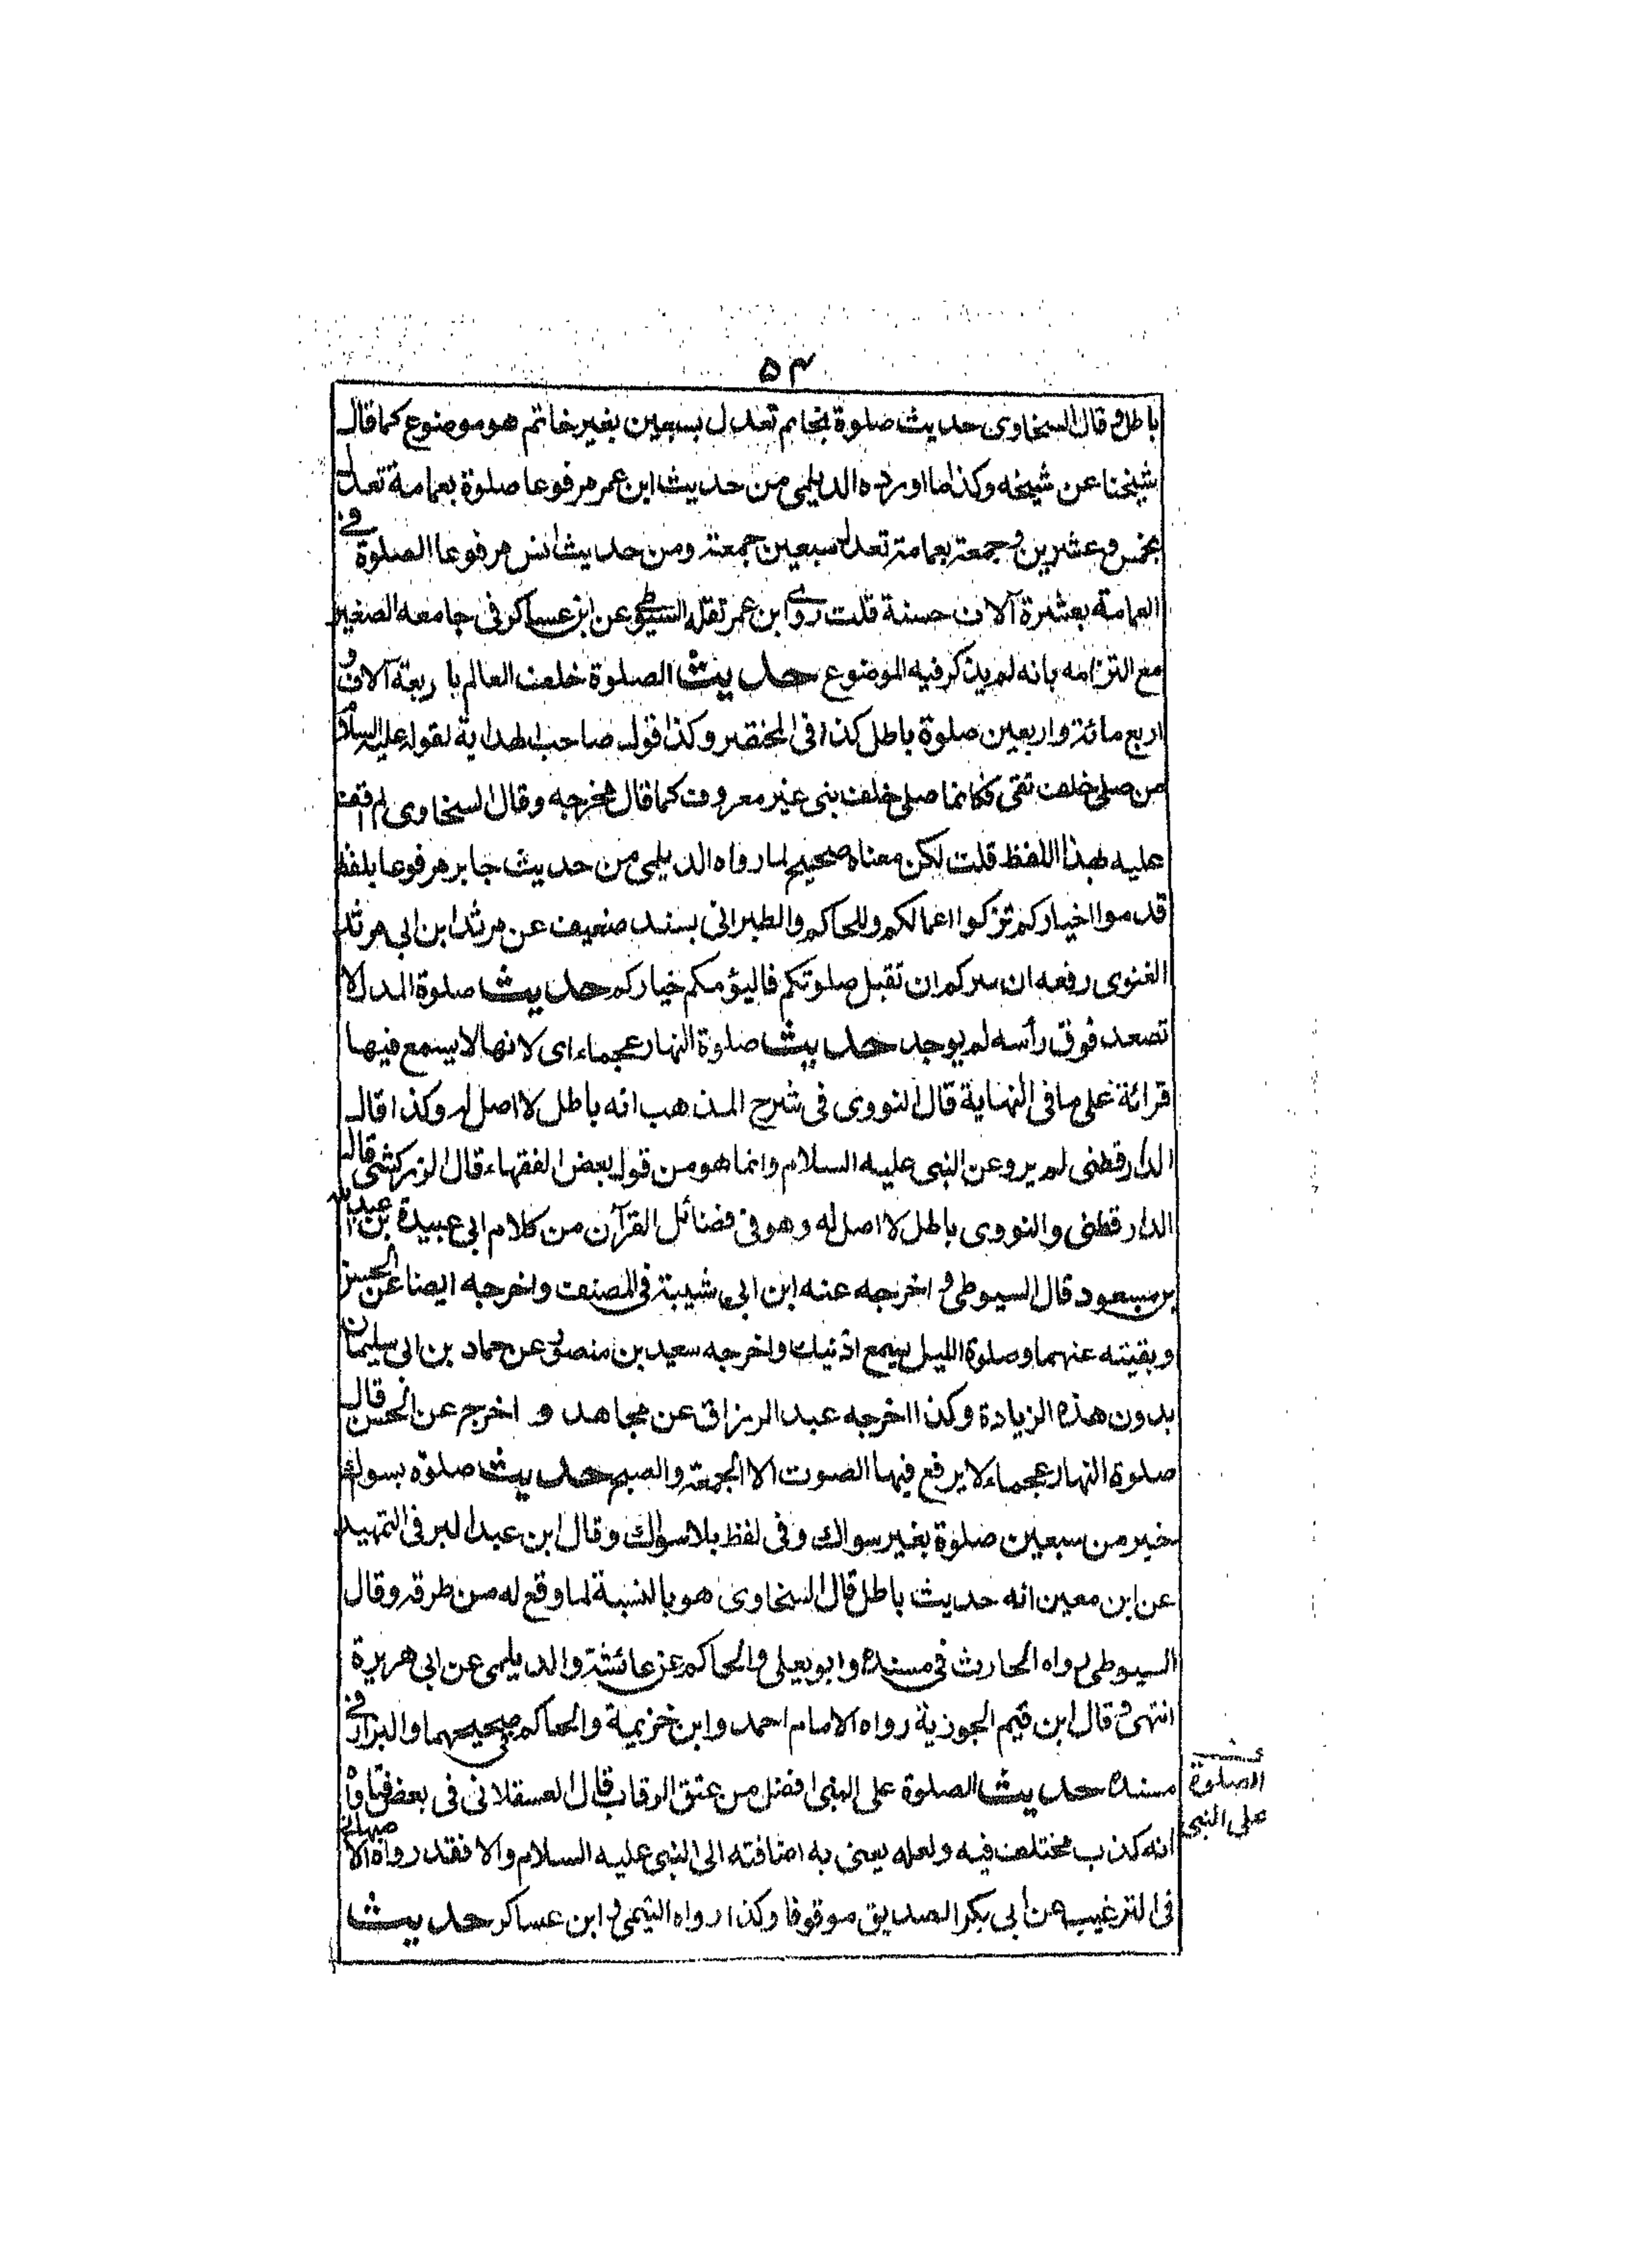 ۵۴
باطل و قال السخاوى حديث صلوة بخاتم تعدل بسبعين بغير خاتم هو موضوع كما قال
شيخنا عن شيخه وكذا ما اورده الديلمى من حديث ابن عمر مرفوعا صلوة بعمامة تعدل
بخمس وعشرين وجمعة بعمامة تعدل سبعين جمعة ومن حديث انس مرفوعا الصلوة فى
العمامة بعشرة آلاف حسنة قلت روى ابن عمر نقله السيوطى عن ابن عساكر فى جامعه الصغير
مع التزامه بانه لم يذكر فيه الموضوع حديث الصلوة خلف العالم باربعة آلاف و
اربع مائة واربعين صلوة باطل كذا فى المختصر وكذا قول صاحب الهداية لقوله عليه السلام
من صلى خلف تقى فكانما صلى خلف نبى غير معروف كما قال مخرجه وقال السخاوى لم اقف
عليه بهذا اللفظ قلت لكن معناه صحيح لما رواه الديلمى من حديث جابر مرفوعا بلفظ
قدموا اخياركم تزكوا اعمالكم وللحاكم والطبرانى بسند ضعيف عن مرثد ابن ابى مرثد
الغنوى رفعه ان سركم ان تقبل صلوتكم فاليؤمكم خياركم حديث صلوة المدل لا
تصعد فوق رأسه لم يوجد حديث صلوة النهار عجماء اى لانها لا يسمع فيها
قرائة على ما فى النهاية قال النووى فى شرح المذهب انه باطل لا اصل له وكذا قال
الدارقطنى لم يرو عن النبى عليه السلام وانما هو من قول بعض الفقهاء قال الزركشى قال
الدارقطنى والنووى باطل لا اصل له وهو فى فضائل القرآن من كلام ابى عبيدة بن عبد الله
بن مسعود قال السيوطى و اخرجه عنه ابن ابى شيبة فى المصنف واخرجه ايضا عن الحسن
وبقيته عنهما وصلوة الليل تسمع اذنيك واخرجه سعيد بن منصور عن حماد بن ابى سليمان
بدون هذه الزيادة وكذا اخرجه عبد الرزاق عن مجاهد و اخرج عن الحسن قال
صلوة النهار عجماء لا يرفع فيها الصوت الا الجمعة والصبح حديث صلوة بسواك
خير من سبعين صلوة بغير سواك وفى لفظ بلا سواك وقال ابن عبد البر فى التمهيد
عن ابن معين انه حديث باطل قال السخاوى هو بالنسبة لما وقع له من طرقه وقال
السيوطى رواه الحارث فى مسنده وابو يعلى والحاكم عن عائشة والديلمى عن ابى هريرة
انتهى و قال ابن قيم الجوزية رواه الامام احمد وابن خزيمة والحاكم فى صحيحهما والبزار فى
مسنده حديث الصلوة على النبى افضل من عتق الرقاب قال العسقلانى فى بعض فتاواه
انه كذب مختلف فيه ولعله يعنى به اضافته الى النبى عليه السلام والا فقد رواه الاصبهانى
فى الترغيب عن ابى بكر الصديق موقوفا وكذا رواه التيمى و ابن عساكر حديث
الصلوة
على النبى